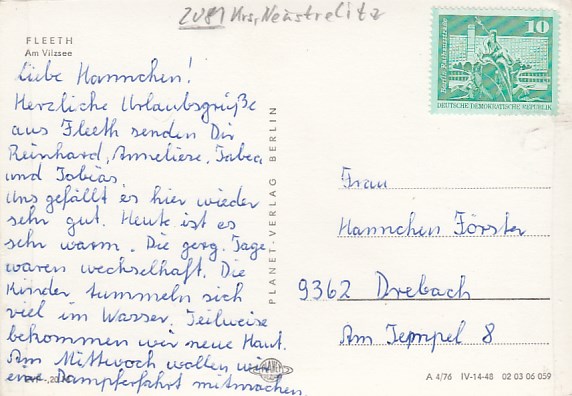 2081 Krs. Neustrelitz
FLEETH
Am Vilzsee
Liebe Hannchen!
Herzliche Urlaubsgrüße
aus Fleeth senden Dir
Reinhard, Anneliese, Tabea
und Tobias.
Uns gefällt es hier wieder
sehr gut. Heute ist es
sehr warm. Die verg. Tage
waren wechselhaft. Die
Kinder tummeln sich
viel im Wasser. Teilweise
bekommen wir neue Haut.
Am Mittwoch wollen wir
eine Dampferfahrt mitmachen.
PLANET-VERLAG BERLIN
10
Berlin, Rathausstraße
DEUTSCHE DEMOKRATISCHE REPUBLIK
Frau
Hannchen Förster
9362 Drebach
Am Tempel 8
PLANET
A 4/76 IV-14-48 02 03 06 059